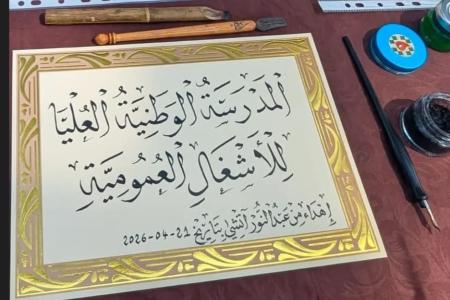 المَدْرَسَةُ الوَطَنِيَّةُ العُلْيَا
لِلْأَشْغَالِ العُمُومِيَّةِ
إهداء من عبد النور آتشي بتاريخ 21-04-2026